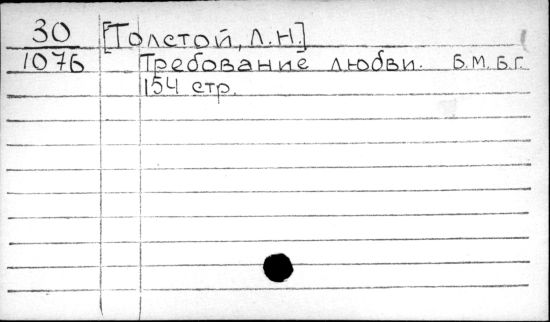 30 [Толстой, Л.Н.]
1076 Требование любви. Б.М. Б.Г.
154 стр.